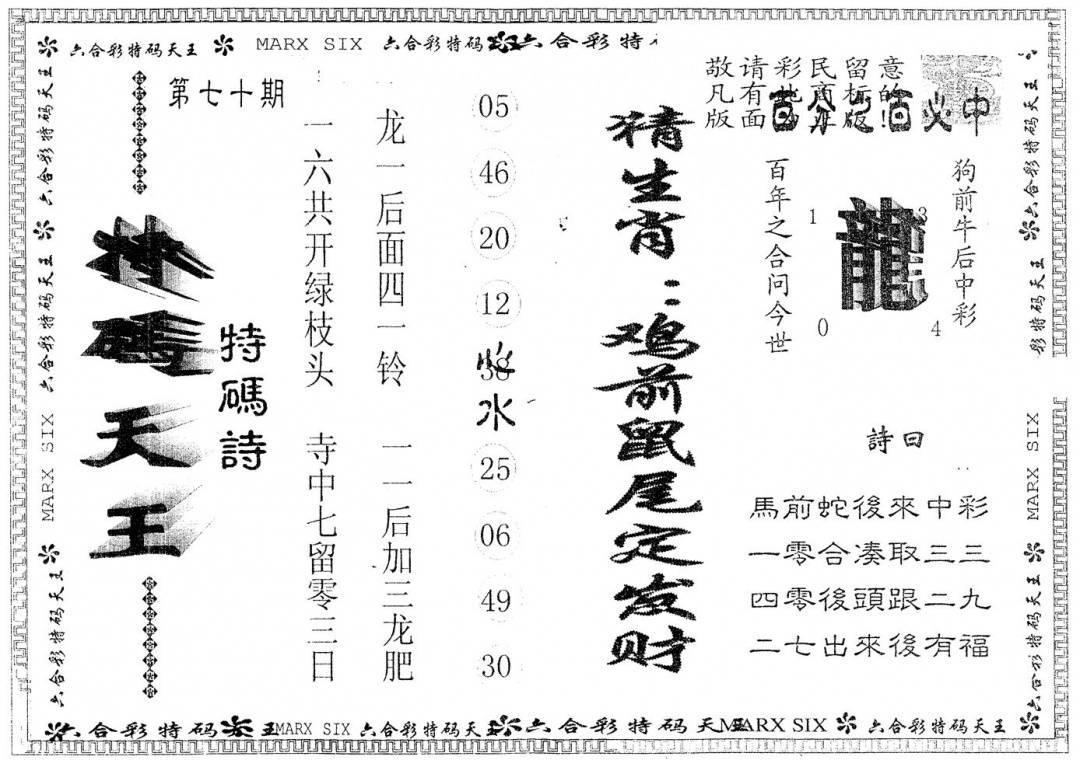 六合彩特码天王 MARX SIX 六合彩特码 六合彩特
六合彩特码天王
六合彩特码天王
六合彩特码天王
MARX SIX
六合彩特码天王
第七十期
特碼天王
特碼詩
一六共开绿枝头 寺中七留零三日
龙一后面四一铃 一一后加三龙肥
05
46
20
12
38
水
25
06
49
30
猜生肖：鸡前鼠尾定发财
敬请彩民留意
凡有此商标的!
版面为正版
百分之百必中
百年之合问今世
1 3
龍
0 4
狗前牛后中彩
詩曰
馬前蛇後來中彩
一零合凑取三三
四零後頭跟二九
二七出來後有福
六合彩特码天王
六合彩特码天王
彩特码天王
MARX SIX
六合彩特码天王
六合彩特码天王
六合彩特码 王 MARX SIX 六合彩特码天王 六合彩特码天王 MARX SIX 六合彩特码天王